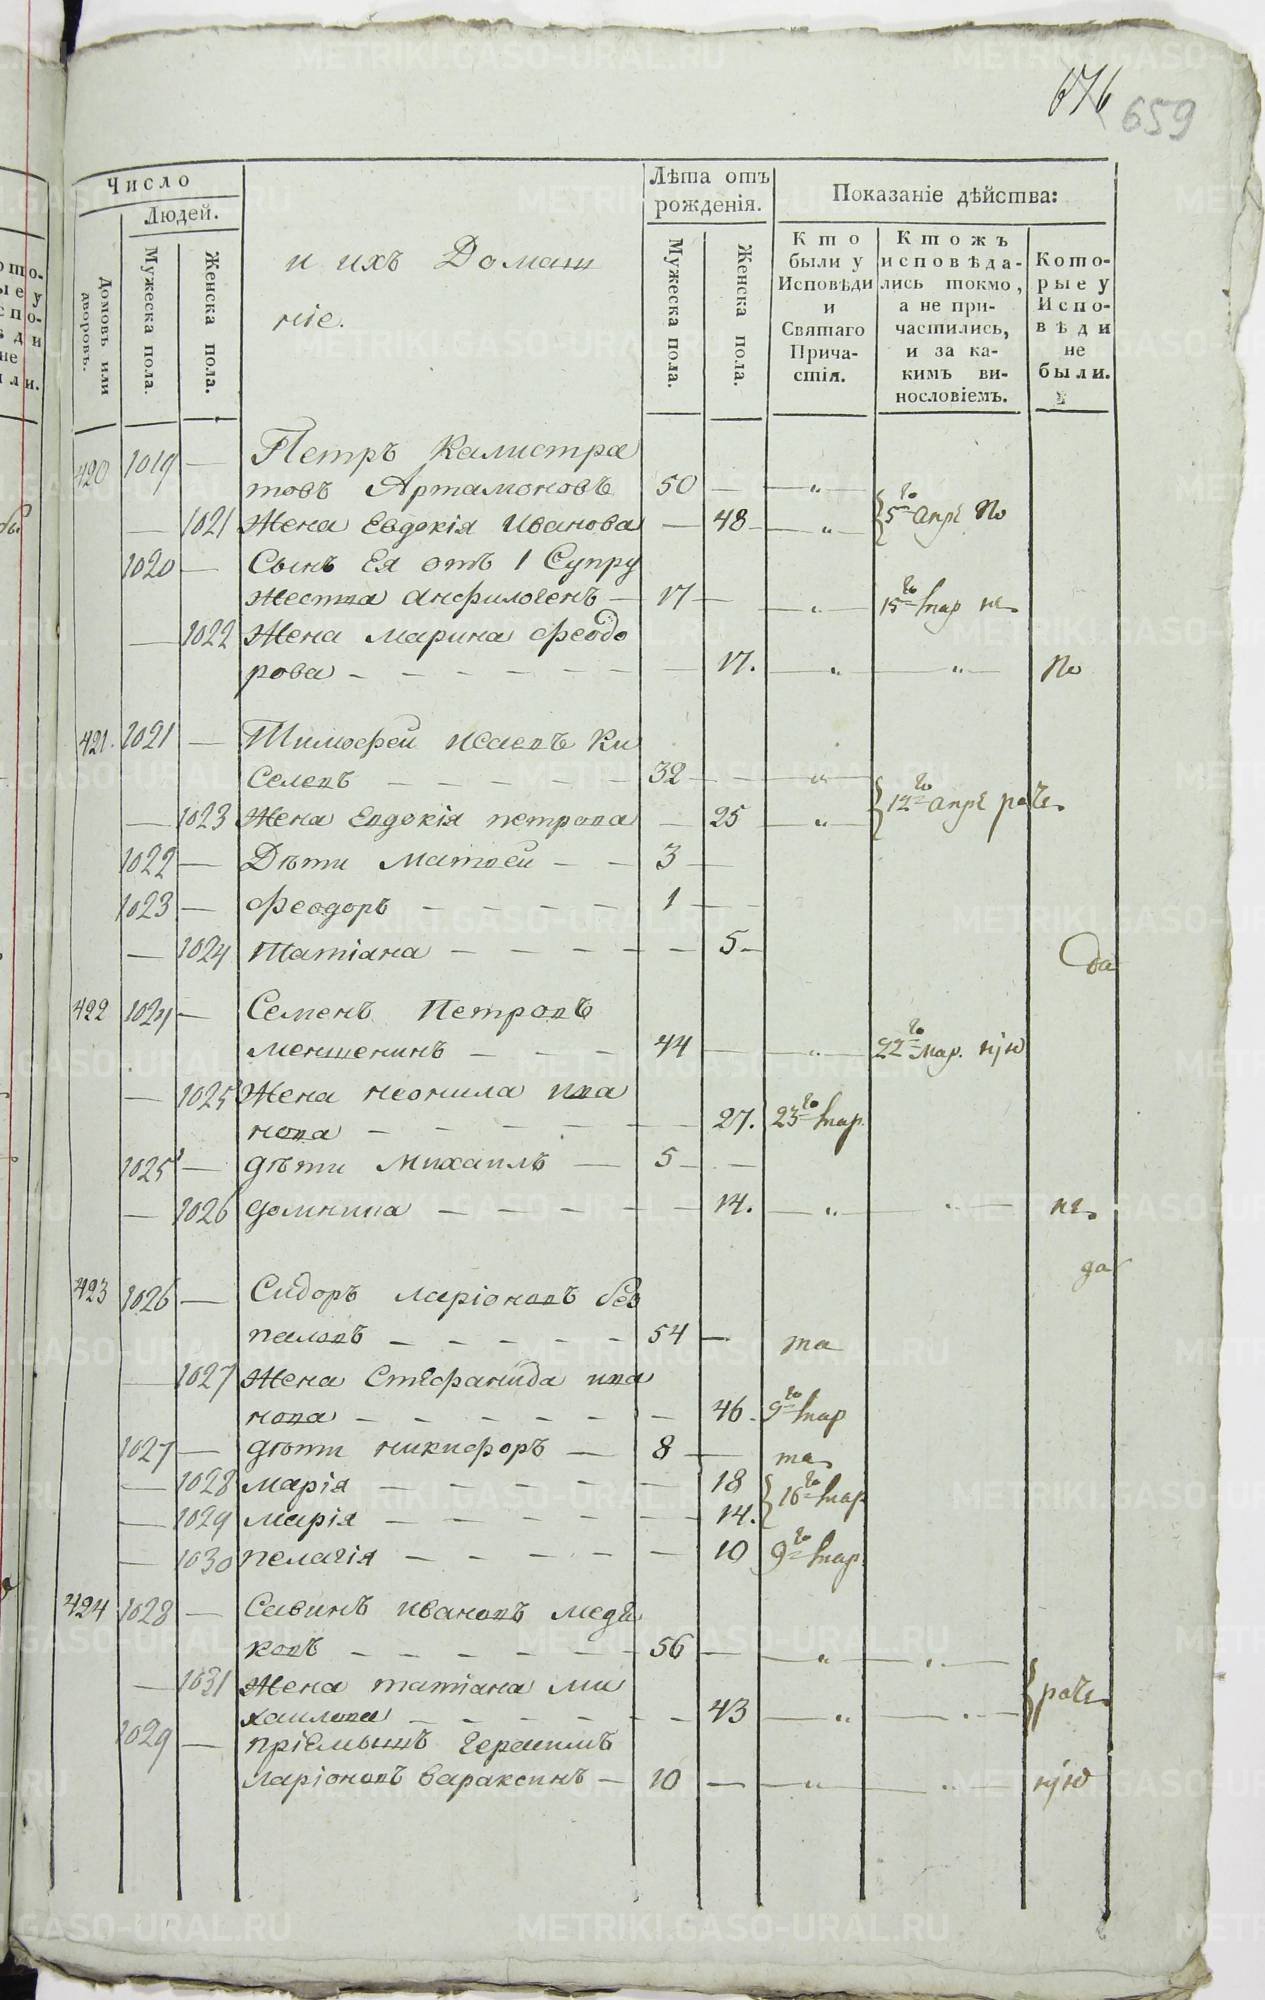 676 659
Число
Людей.
Домовъ или дворовъ.
Мужеска пола.
Женска пола.
и ихъ Домаш
ніе.
Лѣта отъ рожденія.
Мужеска пола.
Женска пола.
Показаніе дѣйства:
Кто были у Исповѣди и Святаго Причастія.
Ктожъ исповѣдались токмо, а не причастились, и за какимъ винословіемъ.
Которые у Исповѣди не были.
420 1019 — Петръ Калистра
товъ Артамоновъ 50 — — „ —
— 1021 Жена Евдокія Иванова — 48 — „ — 5го апрѣ по
1020 — Сынъ Ея отъ 1 Супру
жества Анфилогенъ — 17 — — „ — 15го мар не
— 1022 Жена Марина Феодо
рова — 17. — „ — — „ — по
421. 1021 — Тимофей Исаевъ Ки
селевъ — 32 — — „ —
— 1023 Жена Евдокія Петрова — 25 — „ — 12го апрѣ
1022 — Дѣти Матвей — 3 —
1023 — Феодоръ — 1 —
— 1024 Татіана — 5 —
да
422 1024 — Семенъ Петровъ
Меншенинъ — 44 — — „ — 22го мар.
— 1025 Жена Неонила Ива
нова — 27. 23го мар.
1025 — Дѣти Михаилъ — 5 —
— 1026 Домника — 14. — „ — — „ — не
да
423 1026 — Сидоръ Ларіоновъ Без
паловъ — 54 — та
— 1027 Жена Стефанида Ива
нова — 46. 9го мар
1027 — Дѣти Никифоръ — 8 — та
— 1028 Марія — 18
— 1029 Марія — 14. 16го мар
— 1030 Пелагія — 10 9го мар.
424 1028 — Савинъ Ивановъ Медѣ
ковъ — 56 — — „ — — „ —
— 1031 Жена Татіана Ми
хаилова — 43 — „ — — „ —
1029 — Пріемышъ Герасимъ
Ларіоновъ Вараксинъ — 10 — — „ — — „ —
METRIKI.GASO-URAL.RU